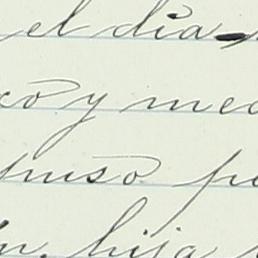 el dia
co y med
puso po
hija